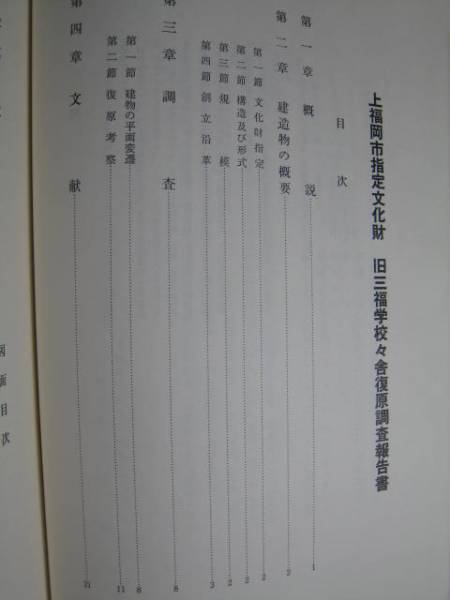 上福岡市指定文化財 旧三福学校々舎復原調査報告書
目次
第一章 概説 1
第二章 建造物の概要 2
第一節 文化財指定 2
第二節 構造及び形式 2
第三節 規模 2
第四節 創立沿革 3
第三章 調査 8
第一節 建物の平面変遷 8
第二節 復原考察 11
第四章 文献
図面目次